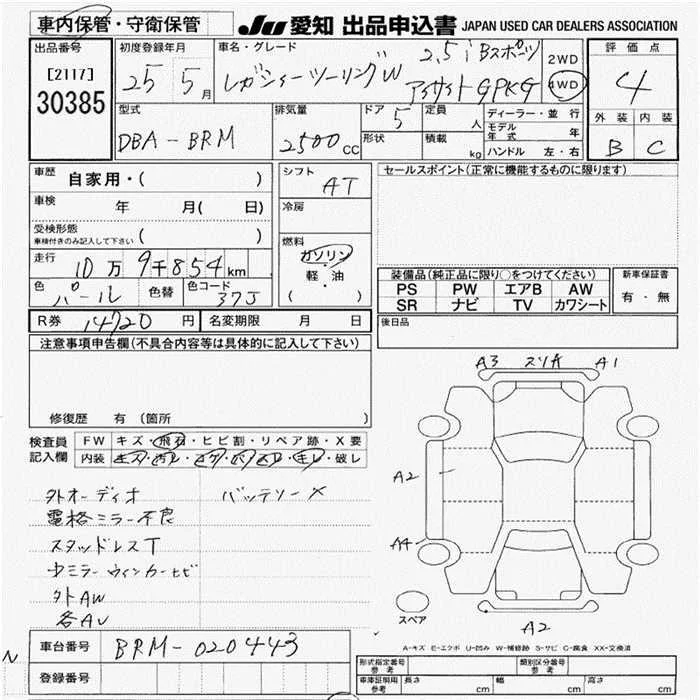 車内保管・守衛保管
JU 愛知 出品申込書 JAPAN USED CAR DEALERS ASSOCIATION
出品番号
[2117]
30385
初度登録年月
25 5月
車名・グレード
2.5i Bスポーツ
レガシィーツーリングW アイサイトGPKG
2WD
4WD
評価点
4
外装 内装
B C
型式
DBA-BRM
排気量
2500 CC
ドア 5
形状
定員 人
積載 kg
ディーラー・並行
モデル年式 年
ハンドル 左・右
車歴 自家用・( )
車検 年 月( 日)
受検形態 ( )
車検付きのみ記入して下さい
走行 10万9千854km
色 パール 色替 色コード 37J
シフト AT
冷房
燃料
ガソリン
・
軽・油
( )
R券 14720円 名変期限 月 日
セールスポイント(正常に機能するものに限ります)
装備品(純正品に限り○をつけてください)
PS PW エアB AW
SR ナビ TV カワシート
新車保証書
有・無
後日品
注意事項申告欄(不具合内容等は具体的に記入して下さい)
修復歴 有(箇所 )
検査員記入欄
FW キズ・飛石・ヒビ割・リペア跡・X要
内装 キズ・汚レ・コゲ・穴・スレ・モレ・破レ
外オーディオ バッテリーX
電格ミラー不良
スタッドレスT
少ミラーウィンカーヒビ
外AW
各AU
N
車台番号 BRM-020443
登録番号
A3 スリキ A1
A2
A4
スペア
A2
A-キズ E-エクボ U-凹み W-補修跡 S-サビ C-腐食 XX-交換済
形式指定番号 参考
類別区分番号 参考
車庫証明用 参考 長さ cm 幅 cm 高さ cm